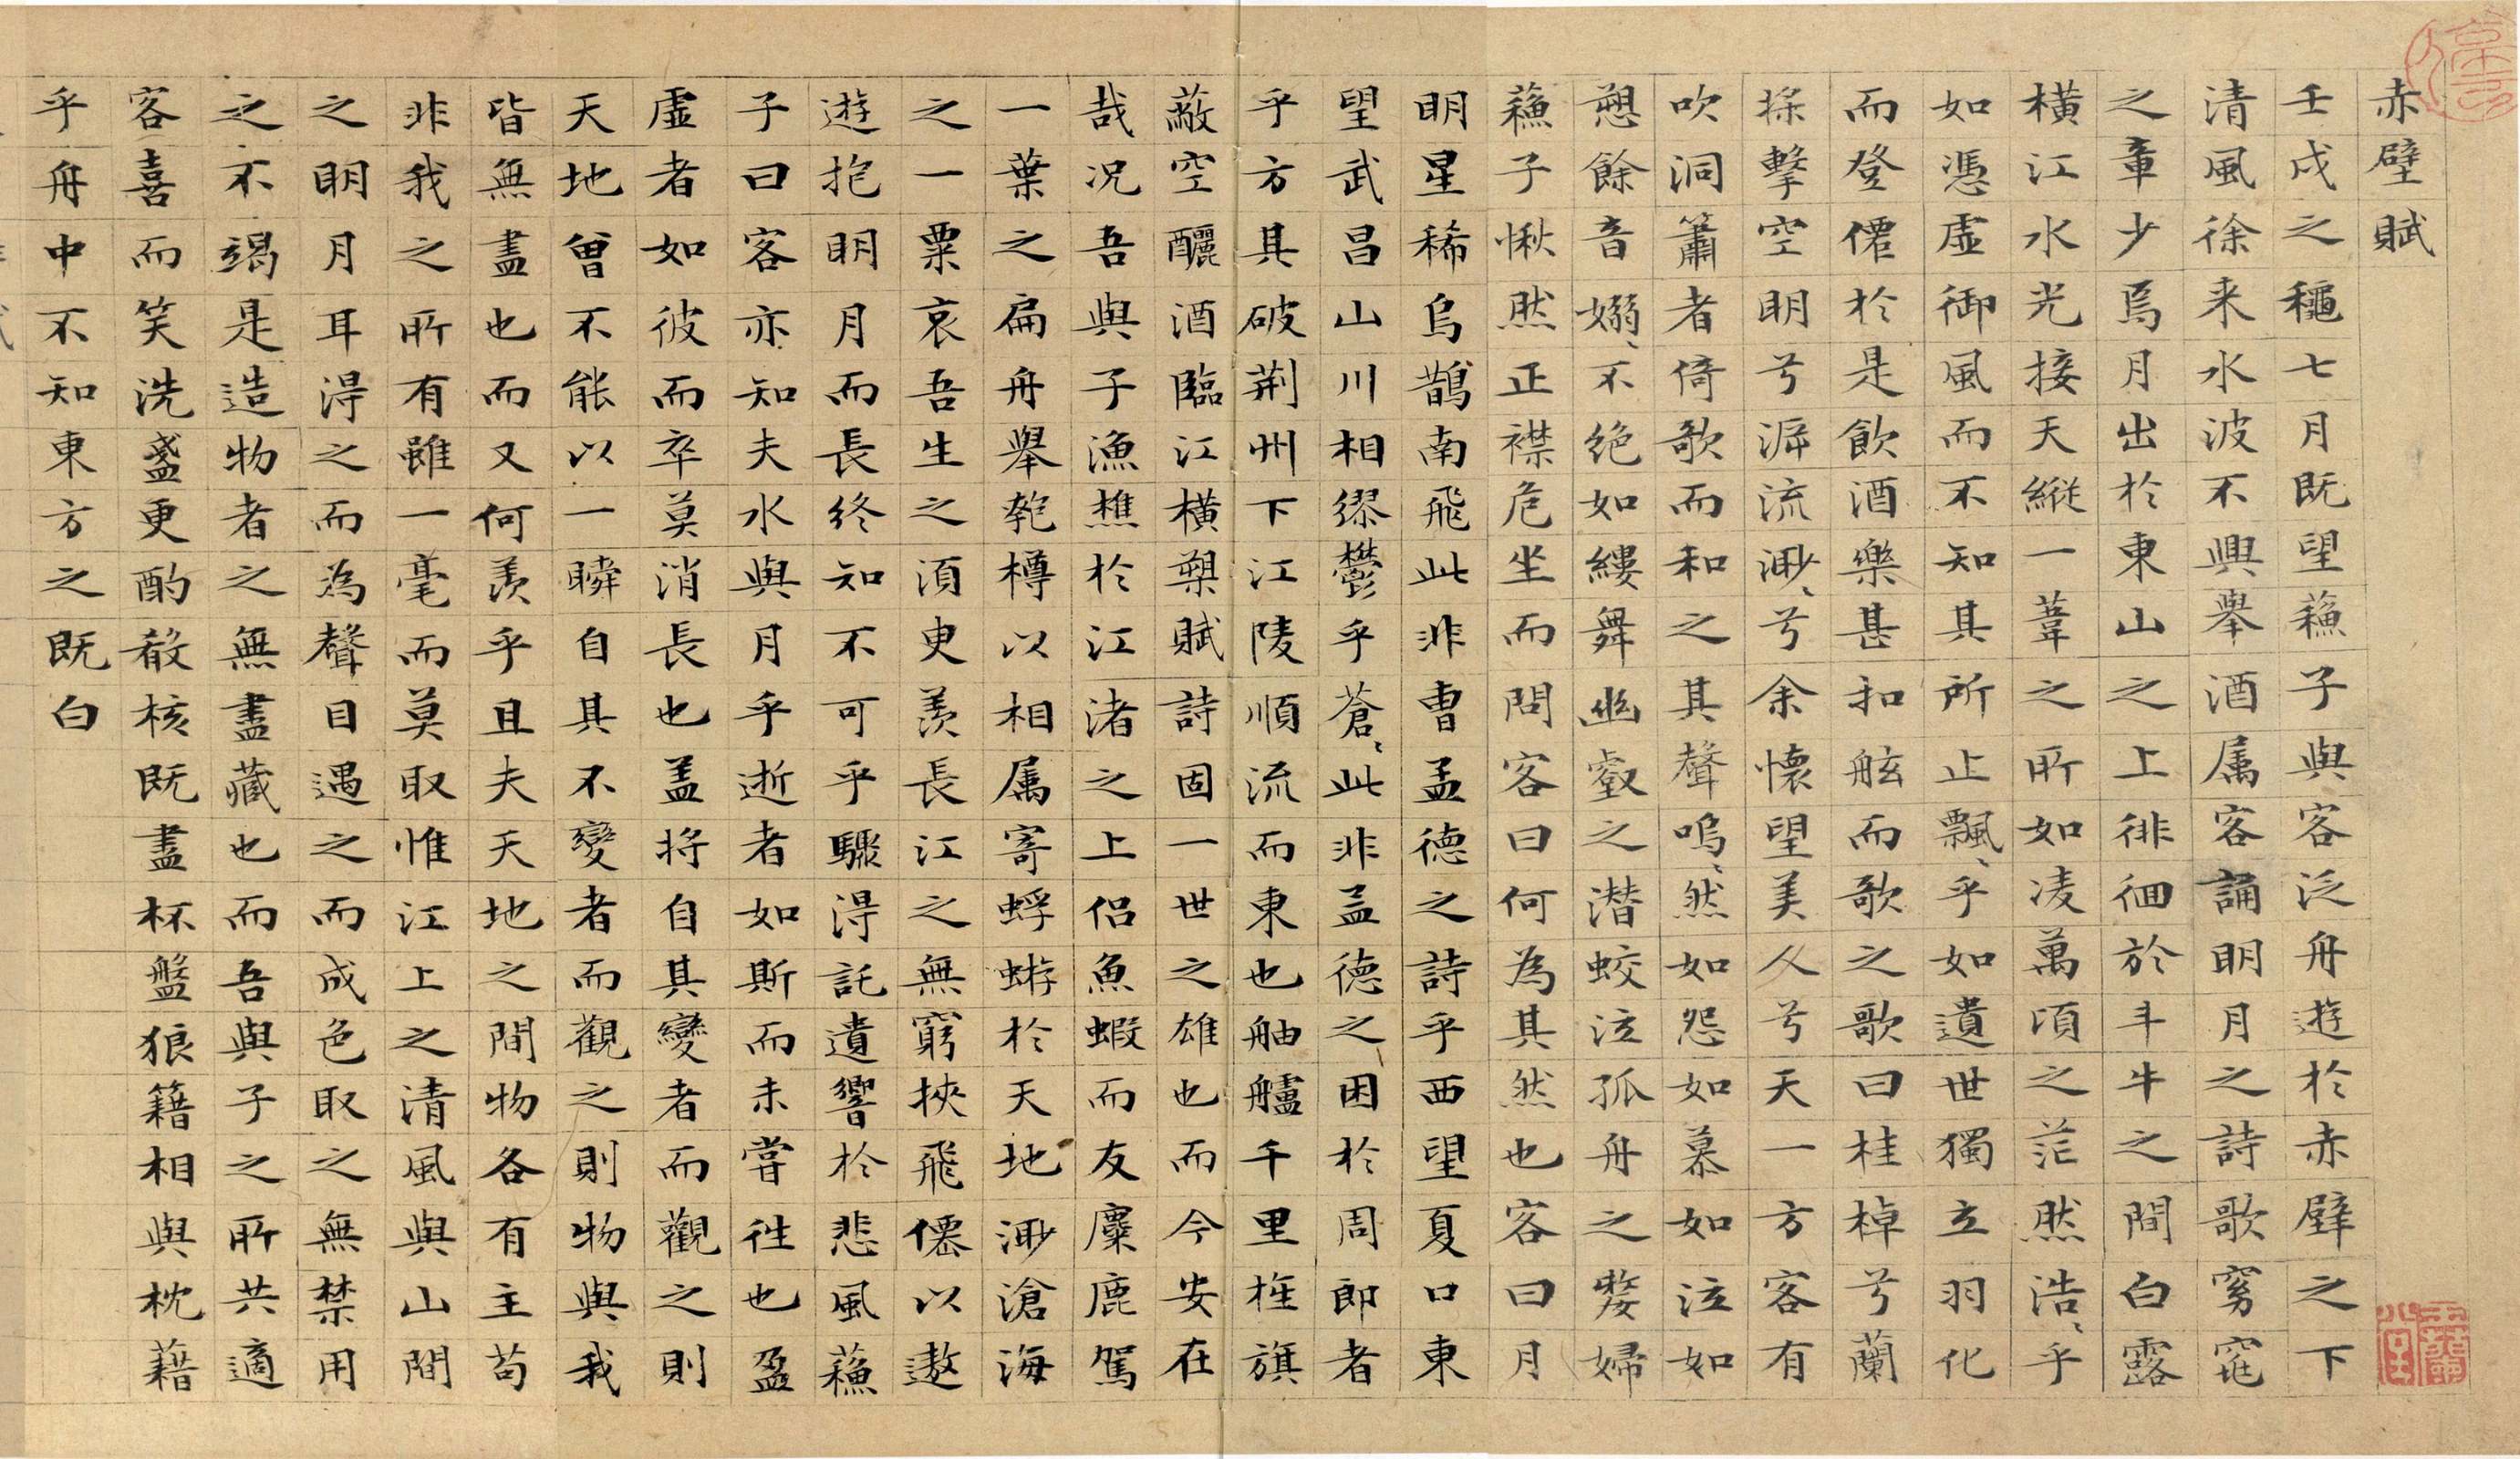 赤壁賦
壬戌之穐七月既望蘓子與客泛舟遊於赤壁之下
清風徐来水波不興舉酒属客誦明月之詩歌窈窕
之章少焉月出於東山之上徘徊於斗牛之間白露
橫江水光接天縱一葦之所如凌萬頃之茫然浩〻乎
如憑虛御風而不知其所止飄〻乎如遺世獨立羽化
而登僊於是飲酒樂甚扣舷而歌之歌曰桂棹兮蘭
槳擊空明兮泝流渺〻兮余懷望美人兮天一方客有
吹洞簫者倚歌而和之其聲嗚〻然如怨如慕如泣如
愬餘音嫋〻不絕如縷舞幽壑之潛蛟泣孤舟之嫠婦
蘓子愀然正襟危坐而問客曰何為其然也客曰月
明星稀烏鵲南飛此非曹孟德之詩乎西望夏口東
望武昌山川相繆鬱乎蒼〻此非孟德之困於周郎者
乎方其破荊州下江陵順流而東也舳艫千里旌旗
蔽空釃酒臨江橫槊賦詩固一世之雄也而今安在
哉況吾與子漁樵於江渚之上侶魚蝦而友麋鹿駕
一葉之扁舟舉匏樽以相属寄蜉蝣於天地渺滄海
之一粟哀吾生之須臾羨長江之無窮挾飛僊以遨
遊抱明月而長終知不可乎驟得託遺響於悲風蘓
子曰客亦知夫水與月乎逝者如斯而未嘗往也盈
虛者如彼而卒莫消長也盖將自其變者而觀之則
天地曾不能以一瞬自其不變者而觀之則物與我
皆無盡也而又何羨乎且夫天地之間物各有主苟
非我之所有雖一毫而莫取惟江上之清風與山間
之明月耳得之而為聲目遇之而成色取之無禁用
之不竭是造物者之無盡藏也而吾與子之所共適
客喜而笑洗盞更酌肴核既盡杯盤狼籍相與枕藉
乎舟中不知東方之既白